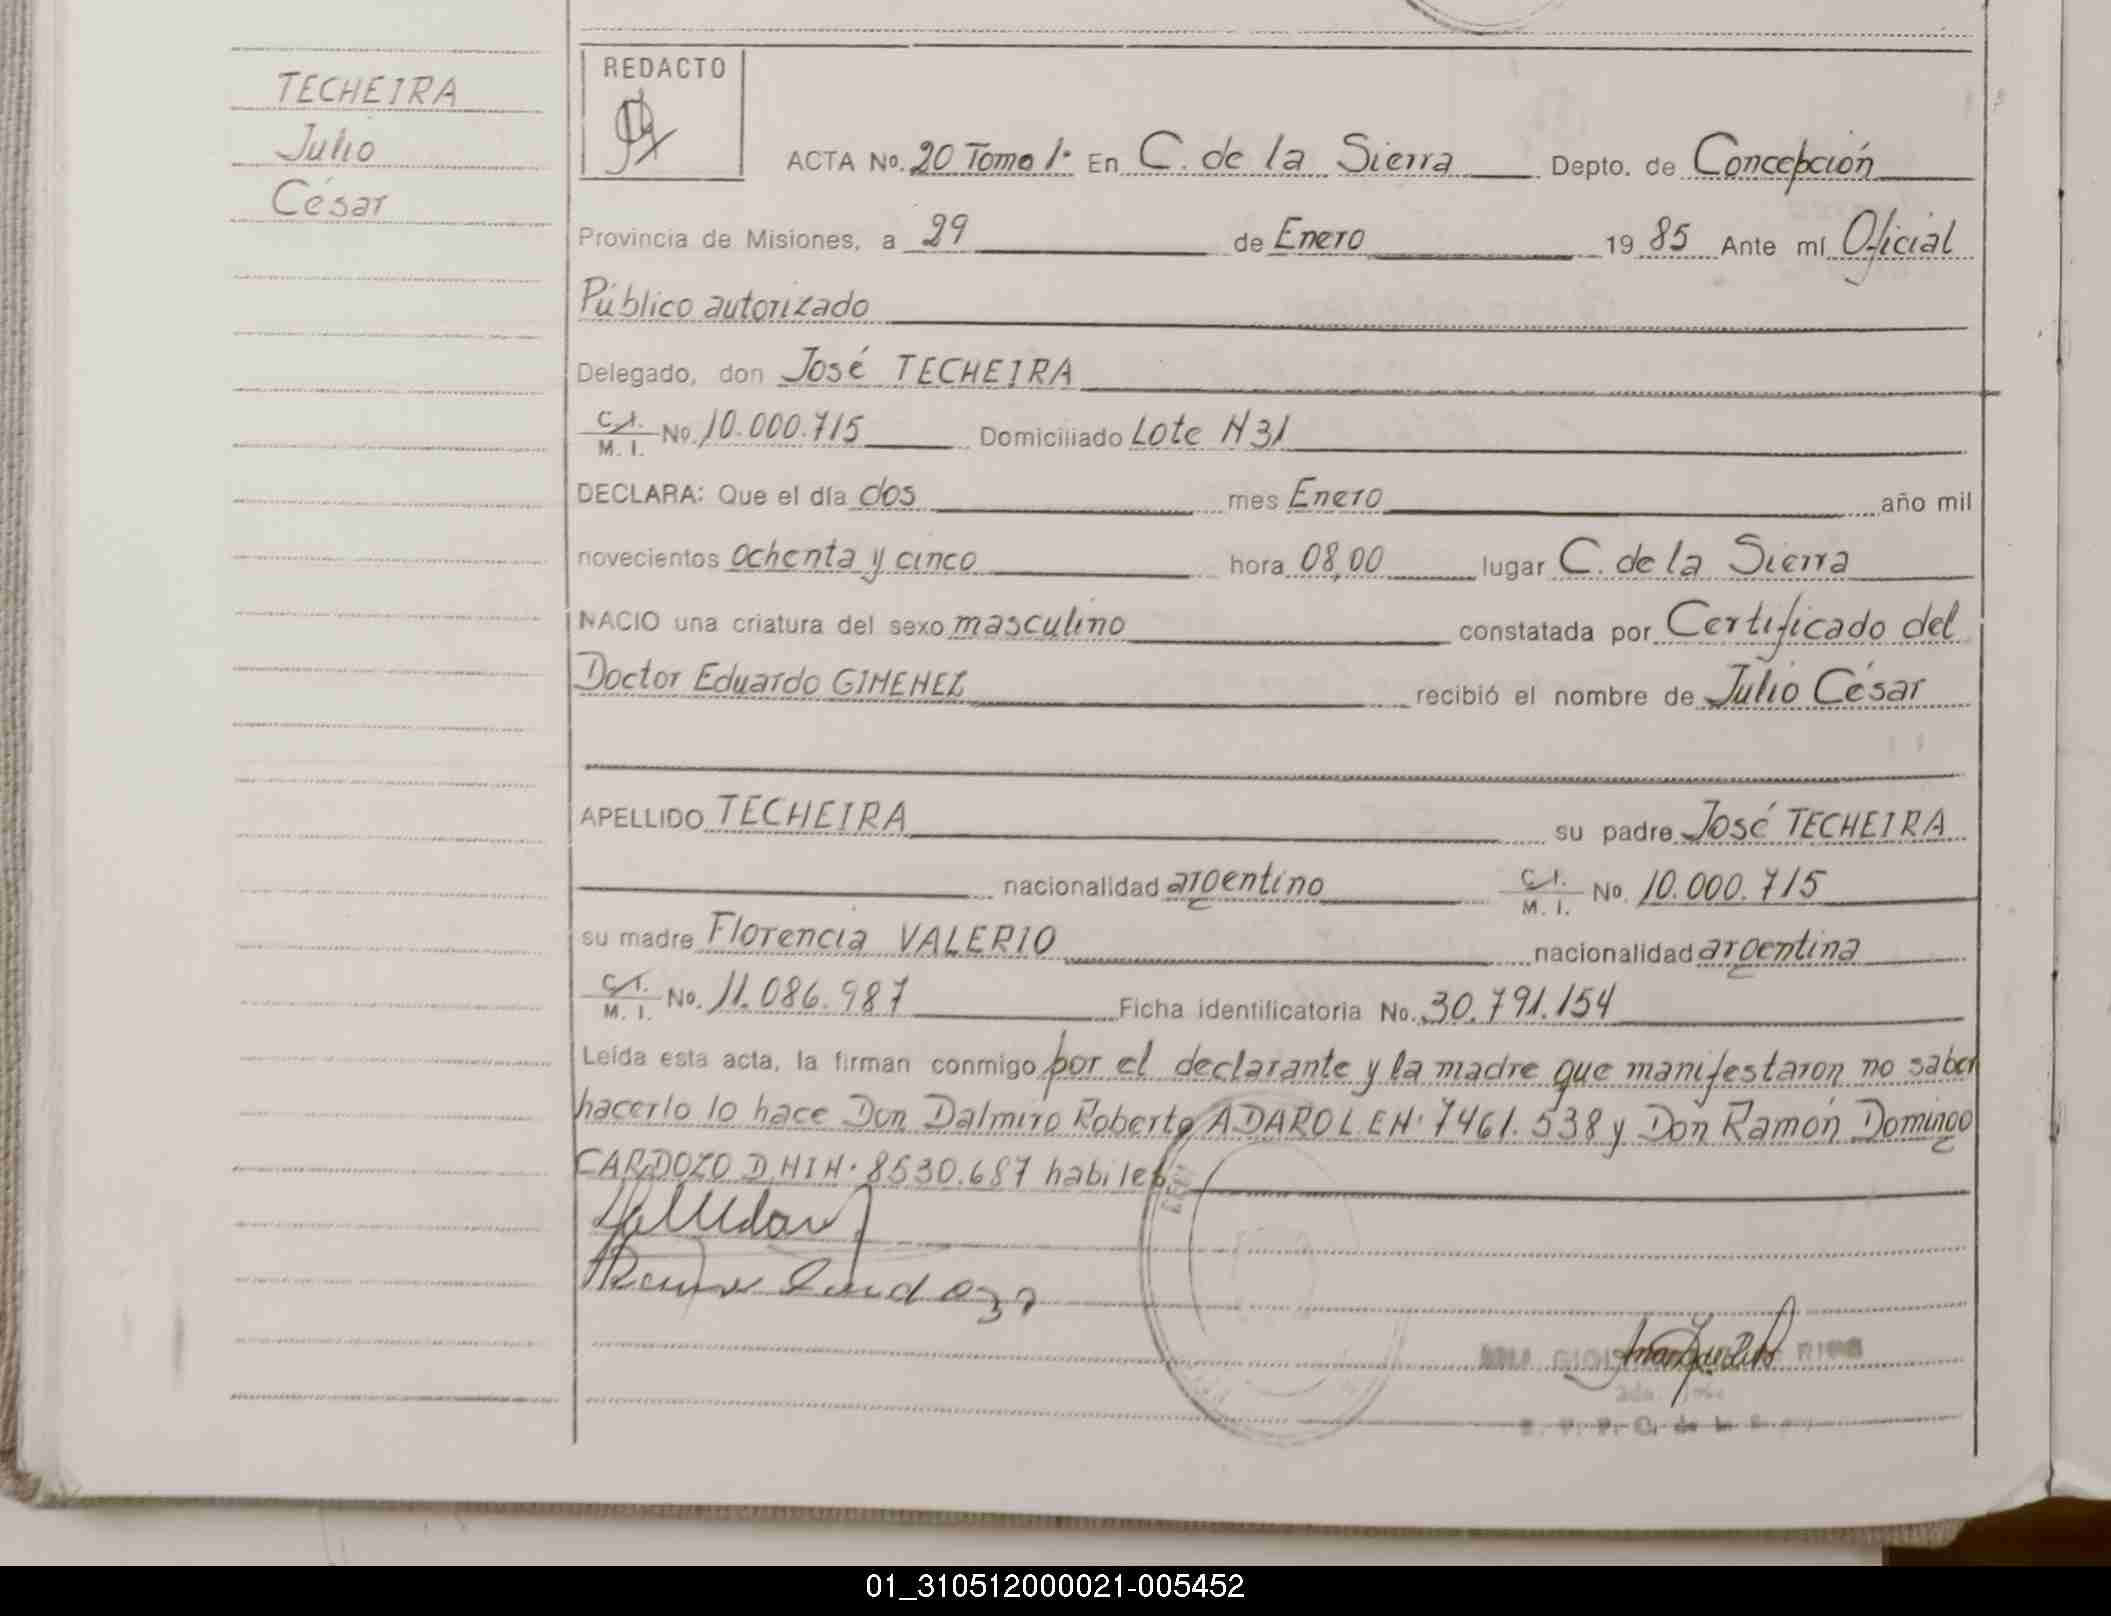 TECHEIRA
Julio
César
REDACTO
ACTA No. 20 Tomo 1º En C. de la Sierra Depto. de Concepción
Provincia de Misiones, a 29 de Enero 1985 Ante mí Oficial
Público autorizado
Delegado, don José TECHEIRA
C.I. M. I. No. 10.000.715 Domiciliado Lote N 31
DECLARA: Que el día dos mes Enero año mil
novecientos ochenta y cinco hora 08,00 lugar C. de la Sierra
NACIO una criatura del sexo masculino constatada por Certificado del
Doctor Eduardo GIMENEZ recibió el nombre de Julio César
APELLIDO TECHEIRA su padre José TECHEIRA
nacionalidad argentino C.I. M. I. No. 10.000.715
su madre Florencia VALERIO nacionalidad argentina
C.I. M. I. No. 11.086.987 Ficha identificatoria No. 30.791.154
Leída esta acta, la firman conmigo por el declarante y la madre que manifestaron no saber
hacerlo lo hace Don Dalmiro Roberto ADARO L.E.N. 7461.538 y Don Ramón Domingo
CARDOZO D.N.I N. 8530.687 habiles
01_310512000021-005452